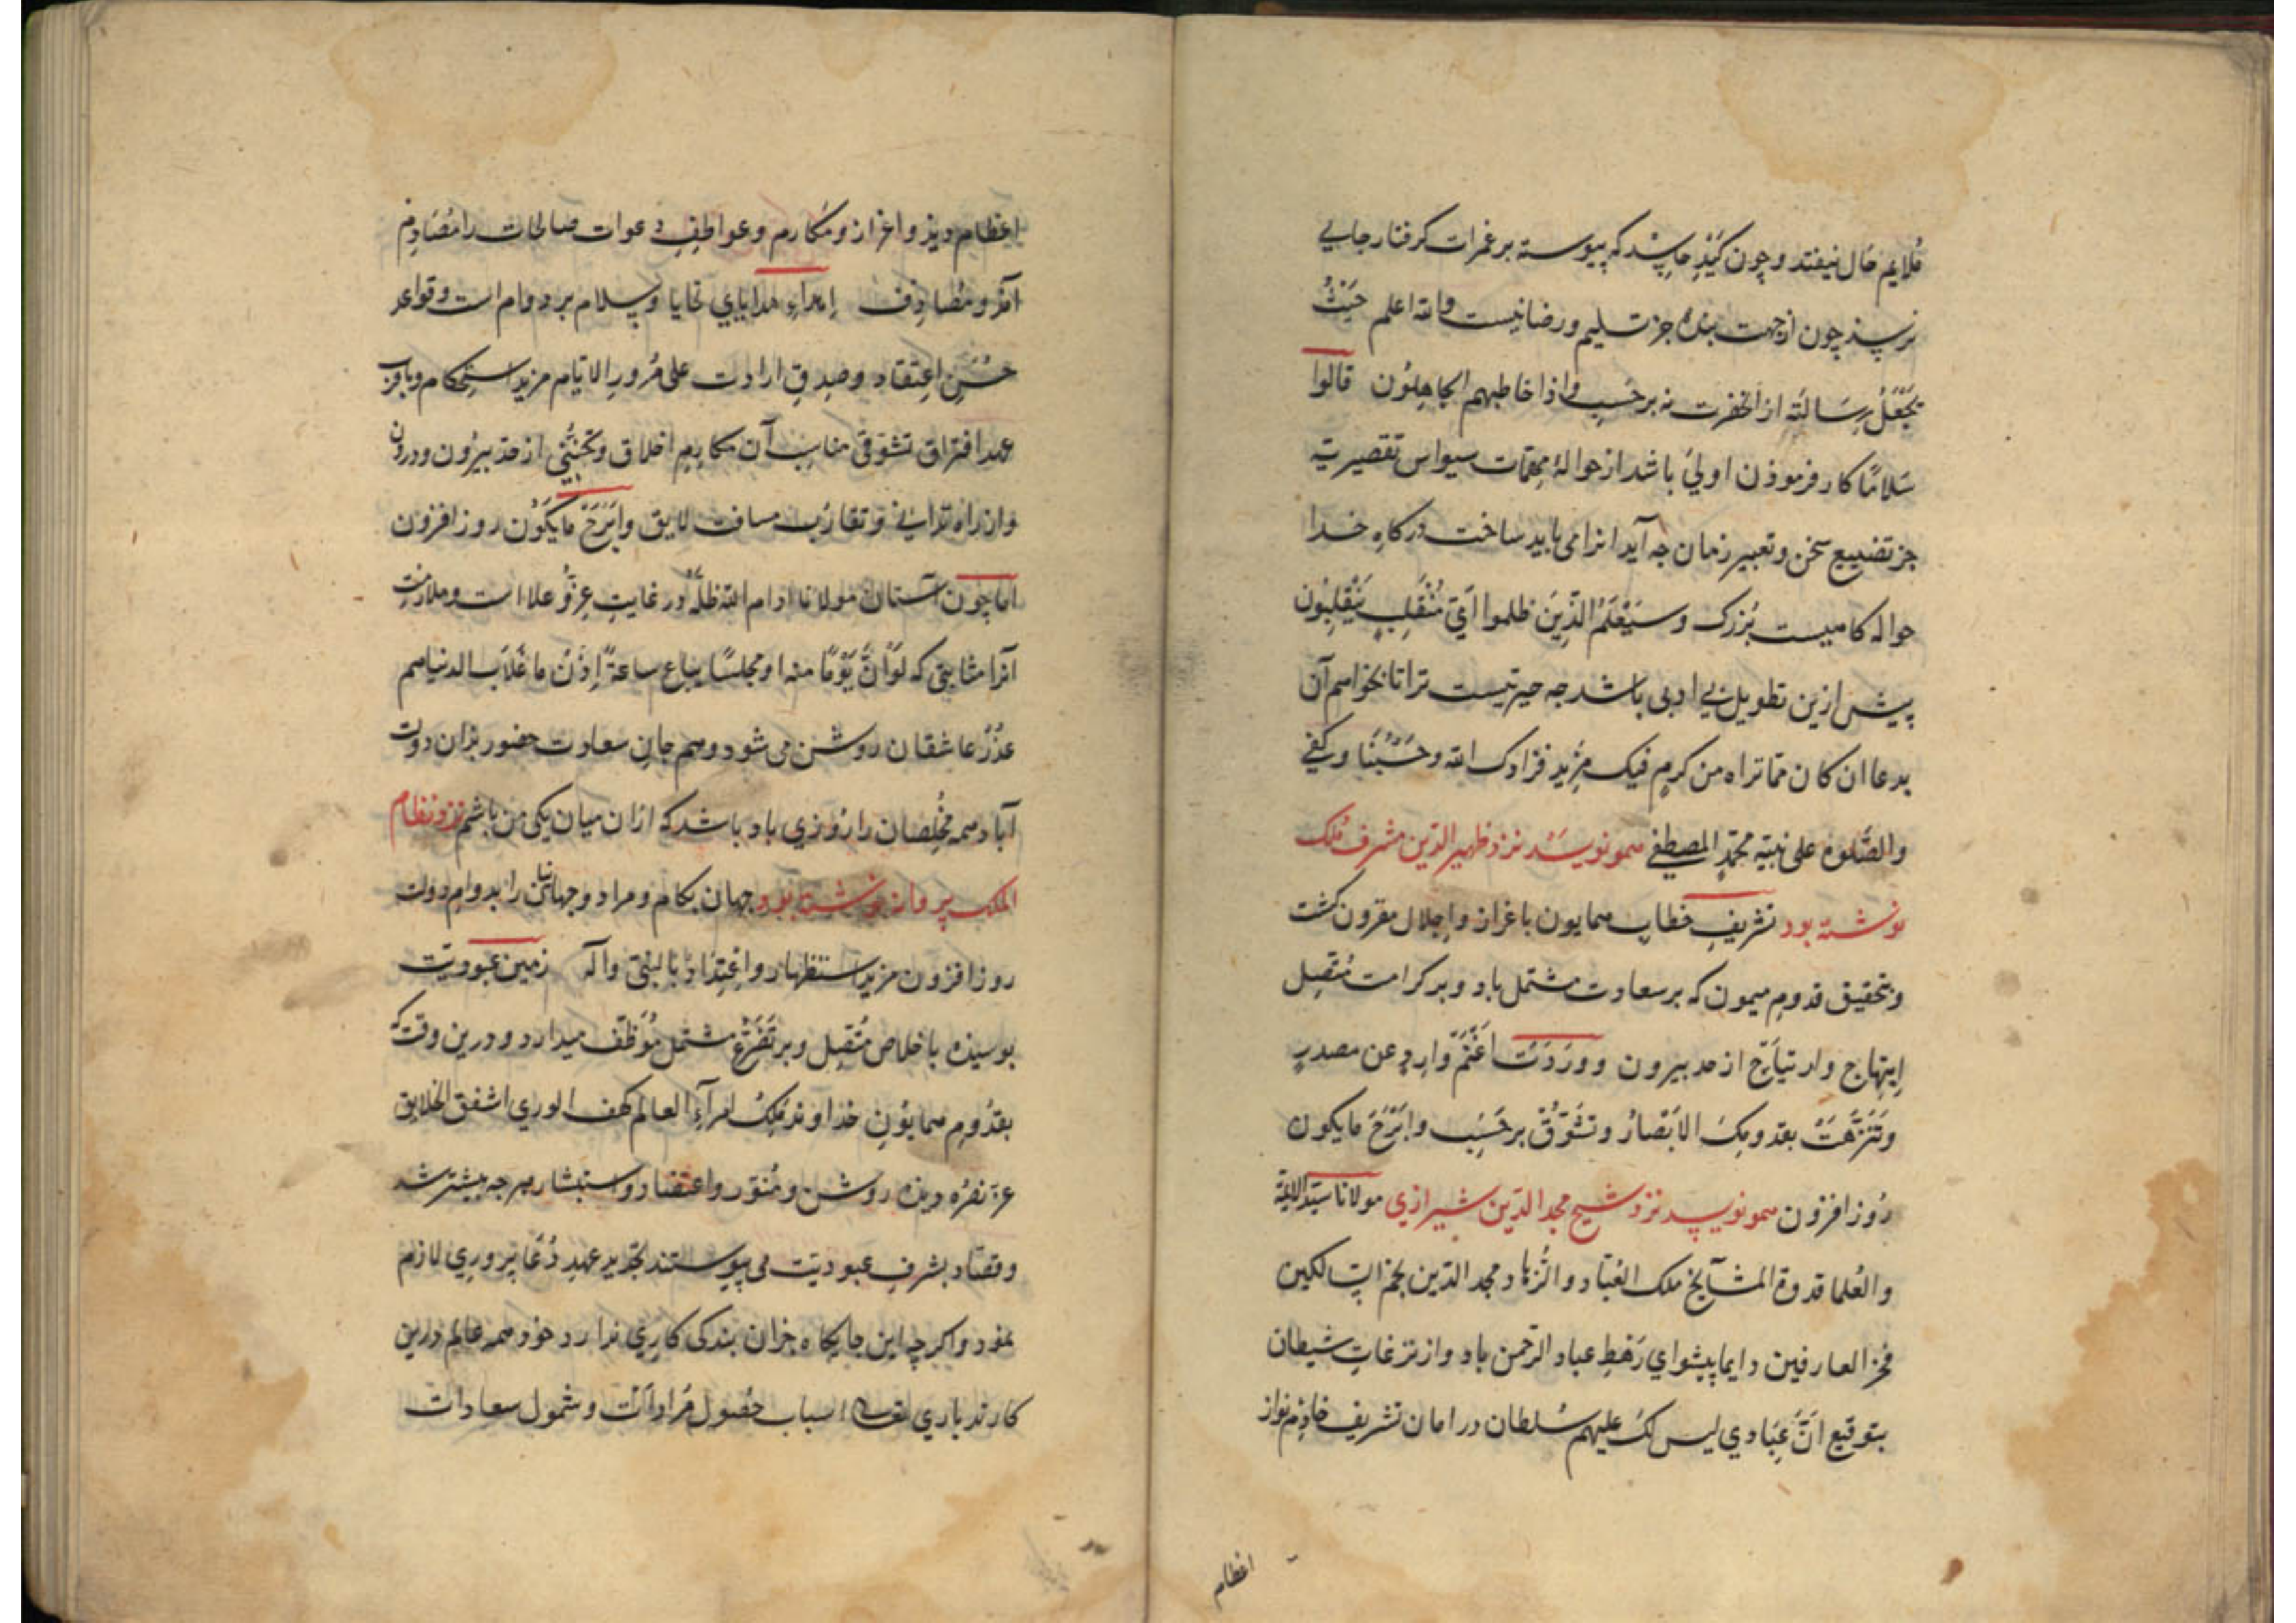 ملایم حال نیفتد و چون کَیْدِ حاسد که پیوسته بر غمرات گرفتار جایی
نرسد چون از جهت بنده جز تسلیم و رضا نیست والله اعلم حَیْثُ
یَجْعَلُ رِسَالَتَه از آنحضرت نه بر حَسَبِ واذا خاطبهم الجاهِلُون قالُوا
سَلامًا کار فرموذن اولیٰ باشد از حوالهٔ مهمّات سیواس تقصیر نیه
جز تضییع سخن و تعبیر زمان جه آید انرا می باید ساخت درکاهِ خدا
حواله کاهیست بُزرک وَسَیَعْلَمُ الَّذِینَ ظلموا اَیَّ مُنْقَلَبٍ یَنْقَلِبُون
پیش ازین تطویل بی ادبی باشد جه حیرتیست ترا تا بخواهم آن
بدعا ان کان ممّا تراه من کرمٍ فیک مزید فزادک الله وحَسْبُنَا وکفی
والصَّلوة علی نبیّه محمّدٍ المصطفی همو نویسد نزد ظهیر الدّین مشرف ملک
نوشته بود تشریفِ خطاب همایون باعزاز واجلال مقرون کشت
وبتحقیق قدومِ میمون که بر سعادت مشتمل باد و بر کرامت مُقبِل
اِبتِهاج وارتیاح از حد بیرون وَوَرَدَتْ اَغْنَمَ وارِدٍ عن مصدرٍ
وَتَنَزَّهَتْ بقدومِکَ الاَبْصارُ وتَشَوُّقْ بر حَسَبِ وابَرْحَ مایکون
روز افزون همو نویسد نزد شیخ مجد الدّین شیرازی مولانا سیّد الائمّة
والعُلما قدوة المشایخ ملک العُبّاد والزُّهاد مجد الدّین نجم السّالکین
فخر العارفین دایما پیشوای رَهْطِ عباد الرّحمن باد واز نزغاتِ شیطان
بتوقیع اَنَّ عِبَادی لیس لَکَ علیهم سُلطان در امان تشریف خادِم نواز
اعظام
اعظام ویز واعزاز ومَکارِم وعواطفِ دعوات صالحات را مُصَادِم
آمَز ومُصادِف اِهداءِ هدایایِ تحایا وسلام بر دوام است وقواعدِ
حُسْنِ اعتقاد وصدقِ ارادت علی مُرورِ الایّام مزید استحکام وبا قربِ
عهد افتراق تشوّقی مناسب آن مکارمِ اخلاق وتَحَنُّنی از حد بیرون ودرون
وان راه تدانی وتقارُب مسافت لایق وابَرْحَ مایکُون روز افزون
امّا چون آستان مولانا ادام الله ظلّه در غایت عزّ وعلا است وملازمت
آنرا مثابتی که لَوْ اَنَّ یَوْمًا منه او مجلسًا یباع ساعةً اِذَنْ ما غَلاَب الدنیا هم
عذرُ عاشقان روشن می شود وهم جانِ سعادت حضور بزان دولت
آباد همه مُخلِصان را روزی باد باشد که ازان میان یکی من باشم نزد نظام
الملک پروانه نوشته بود جهان بکام ومراد وجهانیان را بدوامِ دولت
روز افزون مزید استظهار واعْتِدَاد بالنبیّ وآله زمینِ عبودیّت
بوسیده باخلاص مُقبِل وبر تَضَرُّع مشتمل مُوَظّف میدارد ودرین وقت که
بقُدومِ همایُونِ خداوند مَلِکُ اُمراءِ العالم کهف الوری اشفق الخلایق
عزّ نصرُه دیده روشن ومُنوّر واعتضاد واستبشار هرجه بیشتر شد
وقصّاد بشرفِ عبودیّت می پیوستند تجدیدِ عهدِ دُعا پروری لازم
نمود واکر چه این جایکاه جزان بندکی کاری ندارد خود همه عالم درین
کارند باری تعالی اسباب حُصولِ مُرادات وشمول سعادات